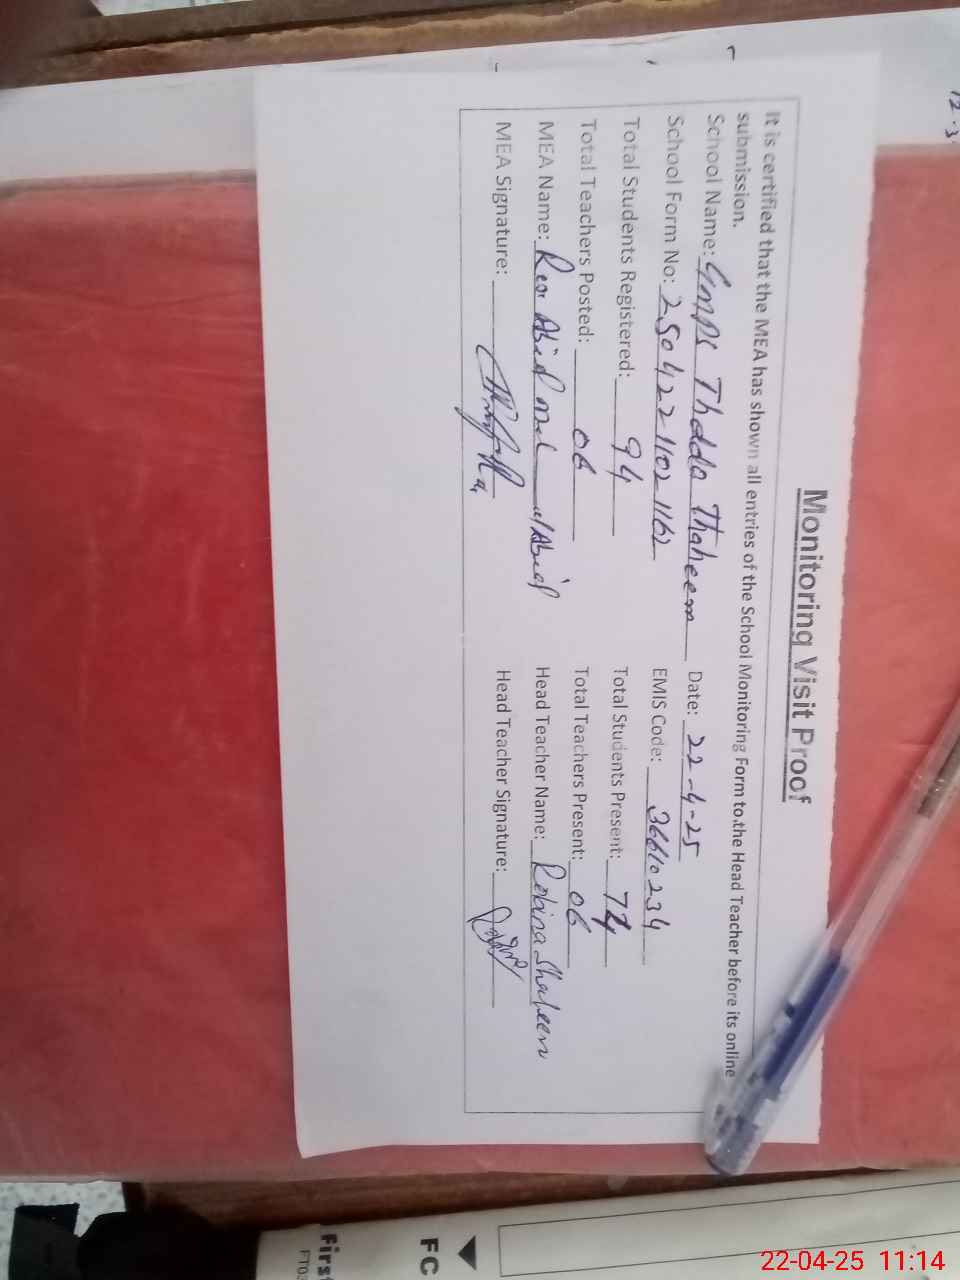 Monitoring Visit Proof
It is certified that the MEA has shown all entries of the School Monitoring Form to the Head Teacher before its online
submission.
School Name: GMPS Thadda Thaheem Date: 22-4-25
School Form No: 25042211021162 EMIS Code: 36610234
Total Students Registered: 94 Total Students Present: 74
Total Teachers Posted: 06 Total Teachers Present: 06
MEA Name: Abid Head Teacher Name: Robina Shaheen
MEA Signature: Head Teacher Signature:
12.3
FC
First
FT03
22-04-25 11:14